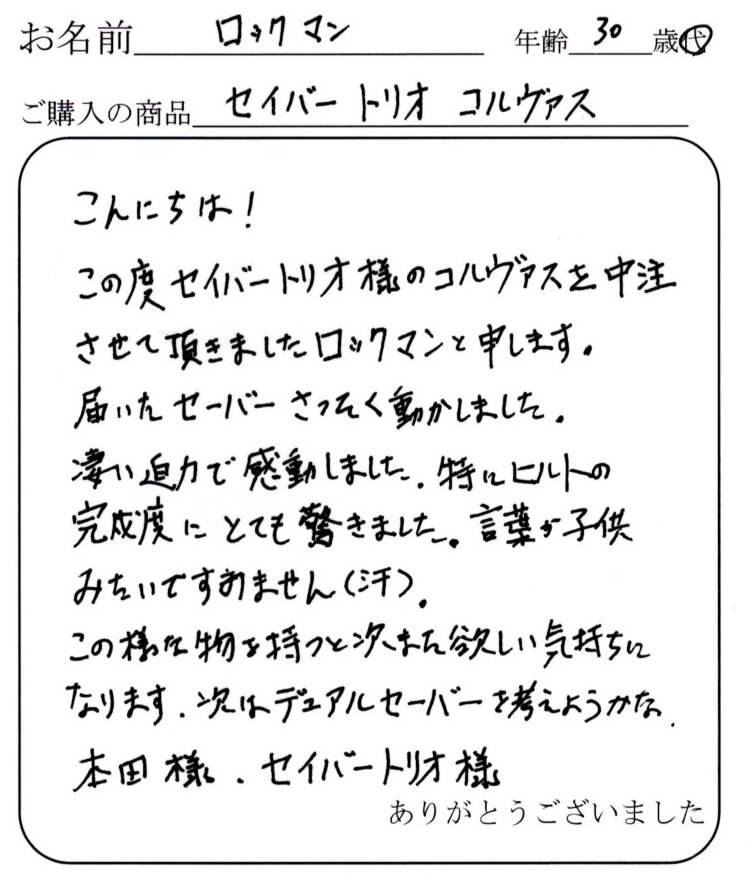 お名前 ロックマン 年齢 30 歳代
ご購入の商品 セイバートリオ コルヴァス
こんにちは!
この度セイバートリオ様のコルヴァスを中注
させて頂きましたロックマンと申します。
届いたセーバーさっそく動かしました。
凄い迫力で感動しました。特にヒルトの
完成度にとても驚きました。言葉が子供
みたいですみません(汗)。
この様な物を持つと次また欲しい気持ちに
なります。次はデュアルセーバーを考えようかな。
本田様、セイバートリオ様
ありがとうございました